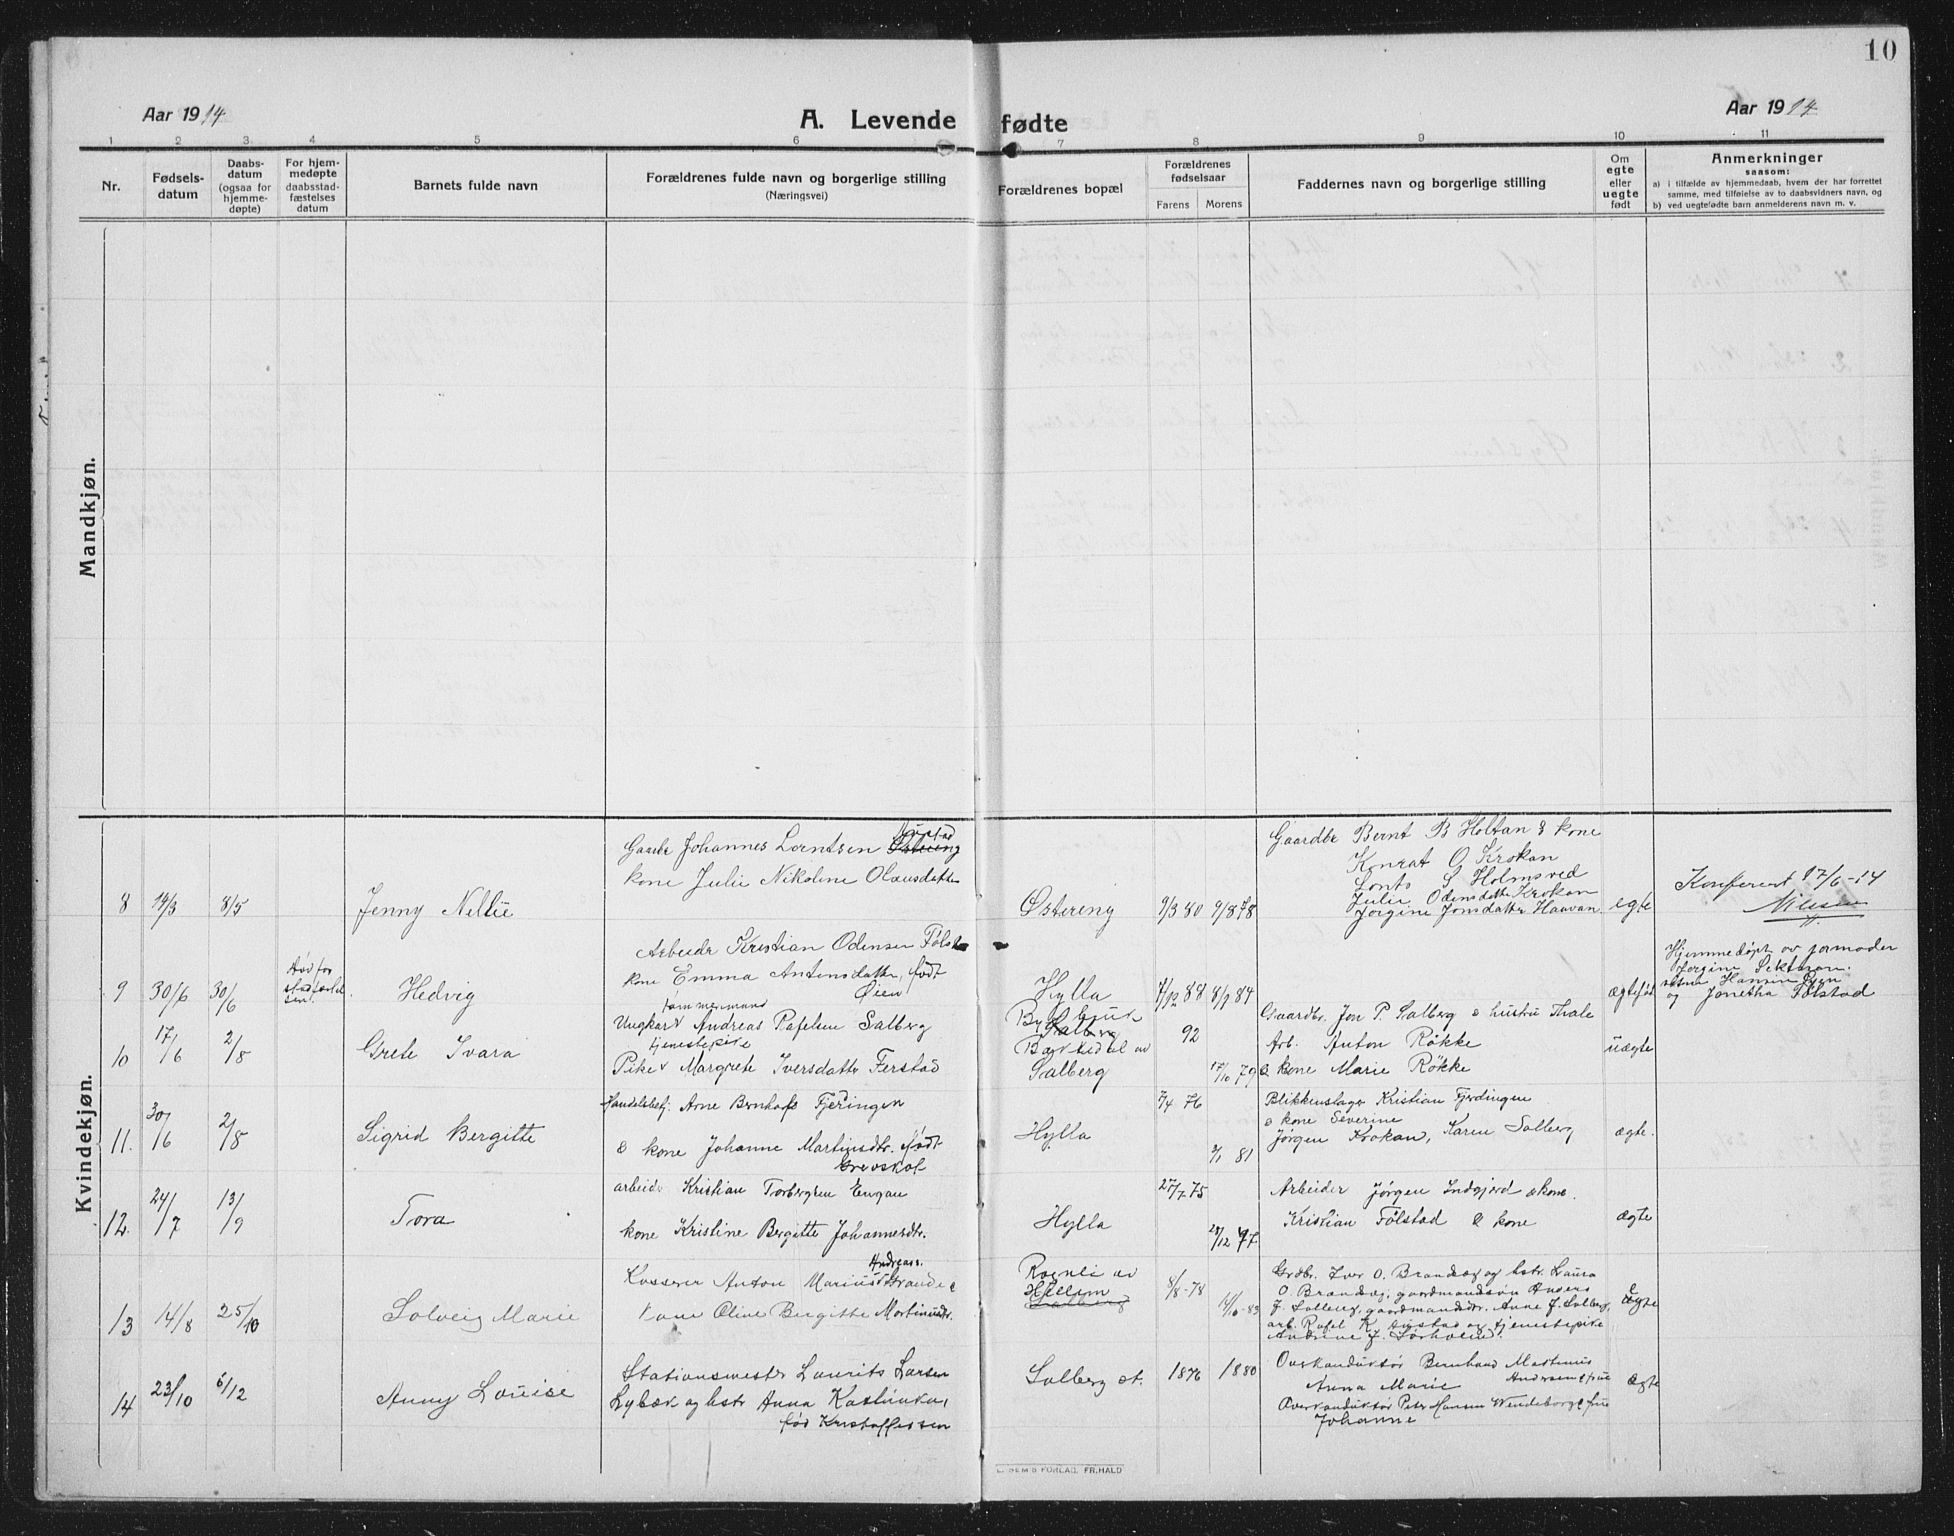 10
Aar 1914
A. Levende fødte
Aar 1914
1 2 3 4 5 6 7 8 9 10 11
Nr.
Fødsels-
datum
Daabs-
datum
(ogsaa for
hjemme-
døpte)
For hjem-
medøpte
daabsstad-
fæstelses
datum
Barnets fulde navn
Forældrenes fulde navn og borgerlige stilling
(Næringsvei)
Forældrenes bopæl
Forældrenes
fødselsaar
Farens Morens
Faddernes navn og borgerlige stilling
Om
egte
eller
uegte
født
Anmerkninger
saasom:
a) i tilfælde av hjemmedaab, hvem der har forrettet
samme, med tilføielse av to daabsvidners navn, og
b) ved uegtefødte barn anmelderens navn m. v.
Mandkjøn.
Kvindekjøn.
8 14/3 8/5 Jenny Nellie
Johannes Lorntsen Østereng
kone Julie Nikoline Olausdatter
Østereng 9/3 80 9/8 78
Gaardbr Bernt B Holtan & kone
Konrat O Krokan
Lonts S Holmsved
Julie Odensdatter Krokan
Jørgine Jonsdatter Haavan
egte
Konferert 17/6-14
Nilssen
9 30/6 30/6
Død før
Hedvig
Arbeidr Kristian Odensen Følst
kone Emma Antonsdatter, født
Øien
Hylla 7/12 88 8/7 84
ægtefød
Hjemmedøpt av jormoder
Jørgine
Hansine
og Jonetha Følstad
10 17/6 2/8 Grete Ivara
tømmermand
Ungkar Andreas Pafelsen Salberg
tjenestepike
Pike Margrete Iversdatter Ferstad
Salberg
92
Salberg
17/10 79
Gaardbr. Jon P. Salberg & hustru Thale
Arb. Anton Røkke
& kone Marie Røkke
uægte
11. 30/6 2/8 Sigrid Bergitte
Handelsbetj. Arne Bernhofs Fjeringen
& kone Johanne Martinsdtr. født
Grevskot
Hylla 7/4 76
81
Blikkenslager Kristian Fjerdingen
& kone Severine
Jørgen Krokan, Karen Salberg
ægte.
12. 24/7 13/9 Tora
arbeidr Kristian Torbergsen Engan
kone Kristine Bergitte Johannesdtr.
Hylla 27/7 75
28/12 77
Arbeider Jørgen Indgjerd & kone.
Kristian Følstad & kone
ægte
13 14/8 25/10 Solveig Marie
Andreass.
Kasserer Anton Marius Grande &
kone Oline Bergitte Martinusdtr.
Rognli av
Hellem
Salberg
8/8-78
14/6-83
Grdbr. Iver O. Brandsæg og hstr. Laura
O. Brandsæg, gaardmandssøn Anders
J. Salberg, gaardmandsdtr. Anne J. Salberg,
arb. Rafel K. og tjenestepike
Andrine J. Sørholm.
Ægte
14 23/10 6/12 Anny Louise
Stationsmester Laurits Larsen
Lybæk og hstr Anna Katinka,
fød Kristoffersen
Salberg st. 1876 1880
Overkonduktør Bernhard Martinus
Andersen & frue
Anna Marie
Overkonduktør Peter Hansen Wendeborg & frue
Johanne
Ægte
FORLAG, FR.HALD